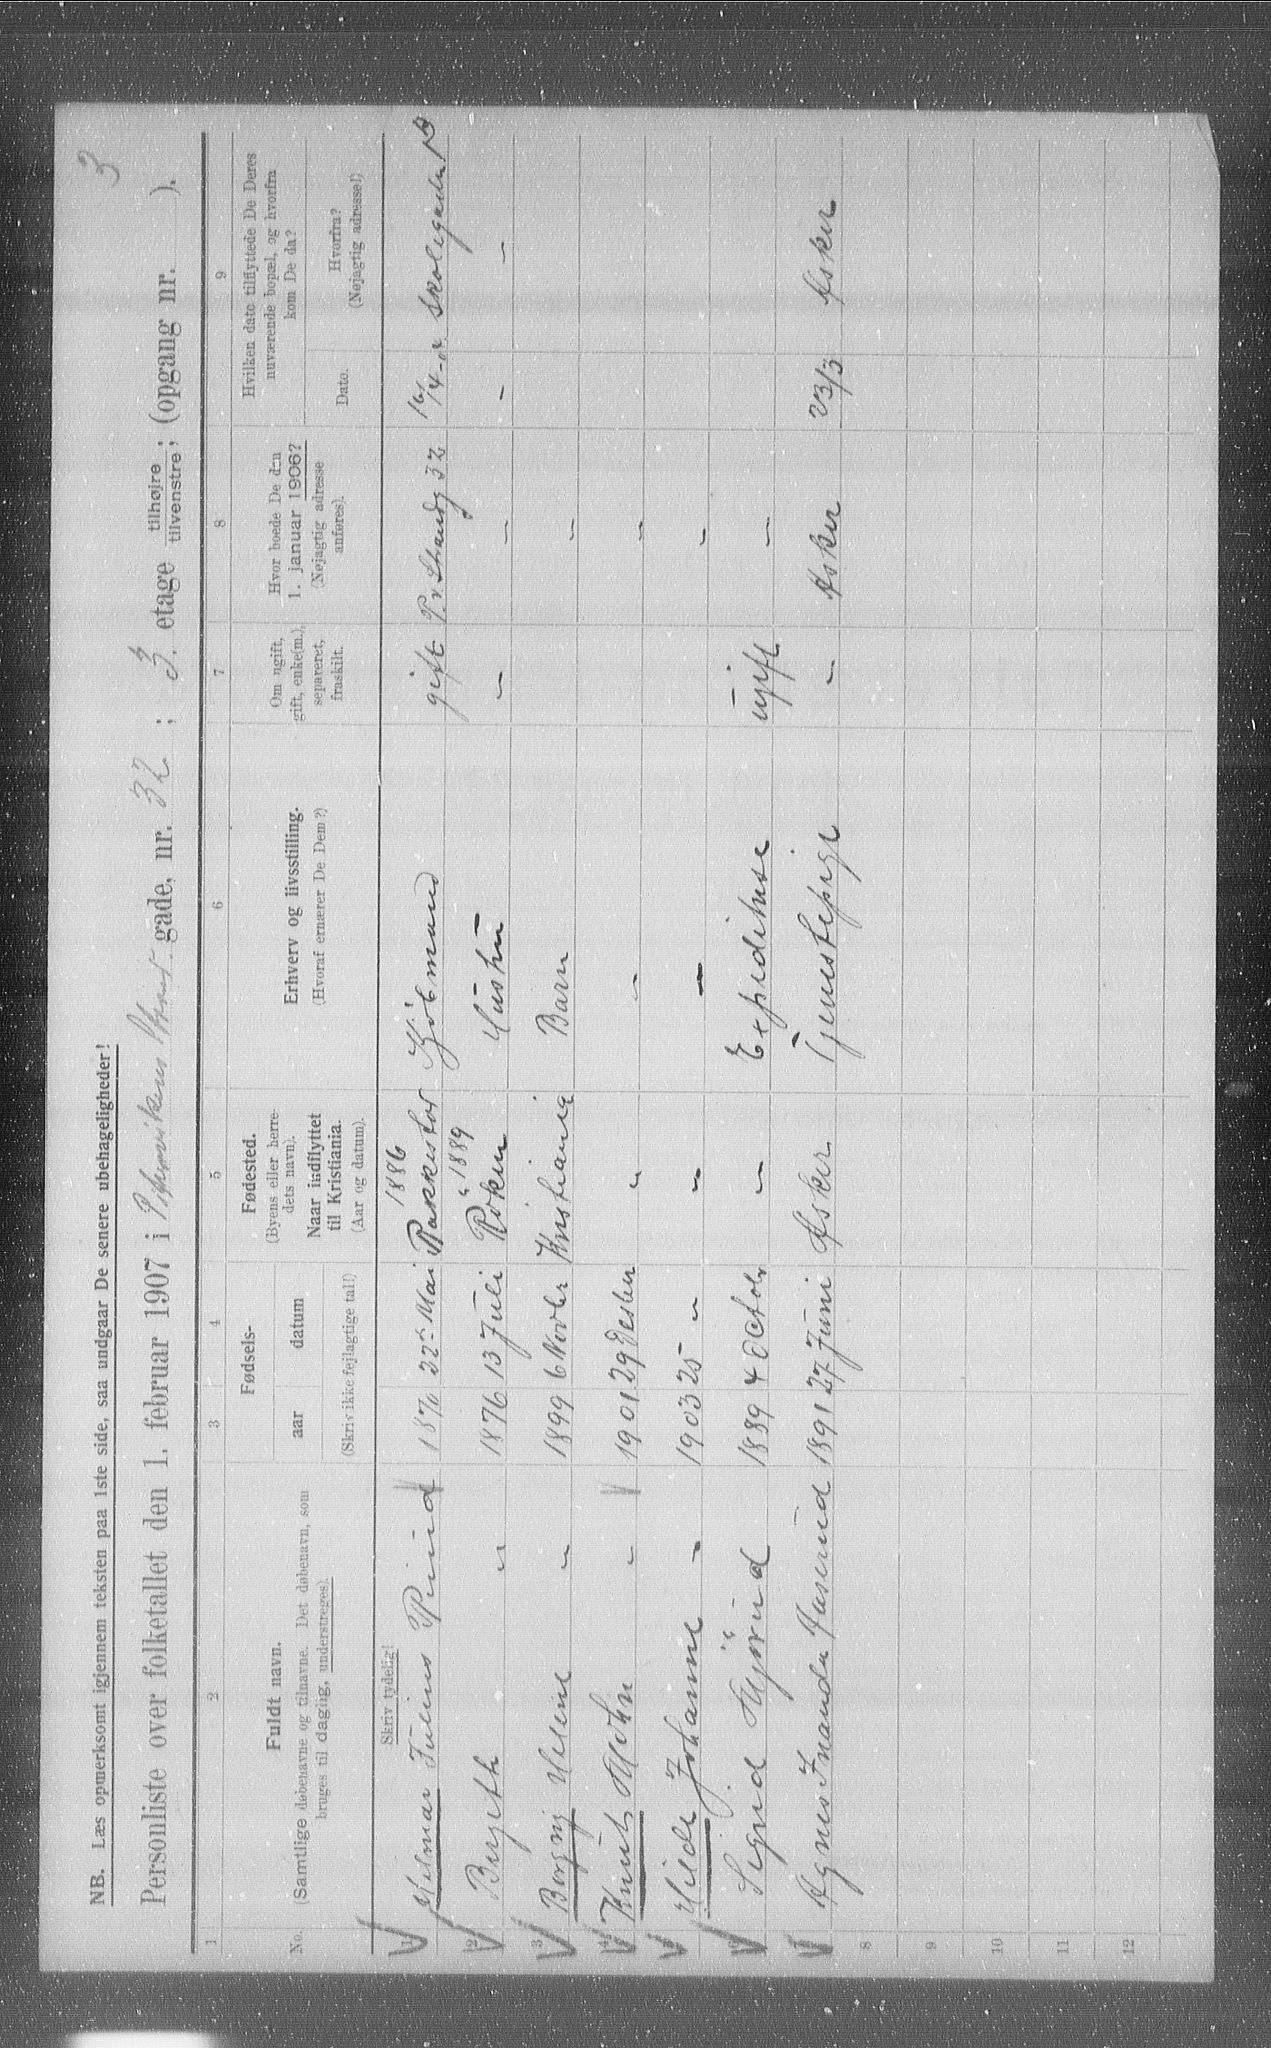 3
NB. Læs opmerksomt igjennem teksten paa 1ste side, saa undgaar De senere ubehageligheder!
Personliste over folketallet den 1. februar 1907 i gade, nr. 32 ; 3. etage tilhøjre tilvenstre; (opgang nr. ).
1 2 3 4 5 6 7 8 9
No. Fuldt navn. (Samtlige døbenavne og tilnavne. Det døbenavn, som bruges til daglig, understreges). Skriv tydelig!
Fødsels- aar datum (Skriv ikke fejlagtige tal!)
Fødested. (Byens eller herredets navn). Naar indflyttet til Kristiania. (Aar og datum).
Erhverv og livsstilling. (Hvoraf ernærer De Dem?)
Om ugift, gift, enke(m.), separeret, fraskilt.
Hvor boede De den 1. januar 1906? (Nøjagtig adresse anføres).
Hvilken dato tilflyttede De Deres nuværende bopæl, og hvorfra kom De da?
Dato. Hvorfra? (Nøjagtig adresse!)
1 Hjelmar Julius 1870 22 Mai Bakkestar 1886 Kjøbmand gift P. v. Strandg 32 16/4 Skolegaden
2 Bergith " 1876 13 Juli Røken " 1889 Hustru " " " "
3 Borgny Helene " 1899 6 Novbr Kristiania Barn "
4 Knut Mohn " 1901 29 Desbr " " "
5 Hilde Johanne " 1903 25 " " " "
6 Sigrid 1889 4 Octobr " Expeditrise ugift "
7 Agnes Inanda 1891 27 Juni Asker Tjenestepige " Asker 23/3 Asker
8
9
10
11
12